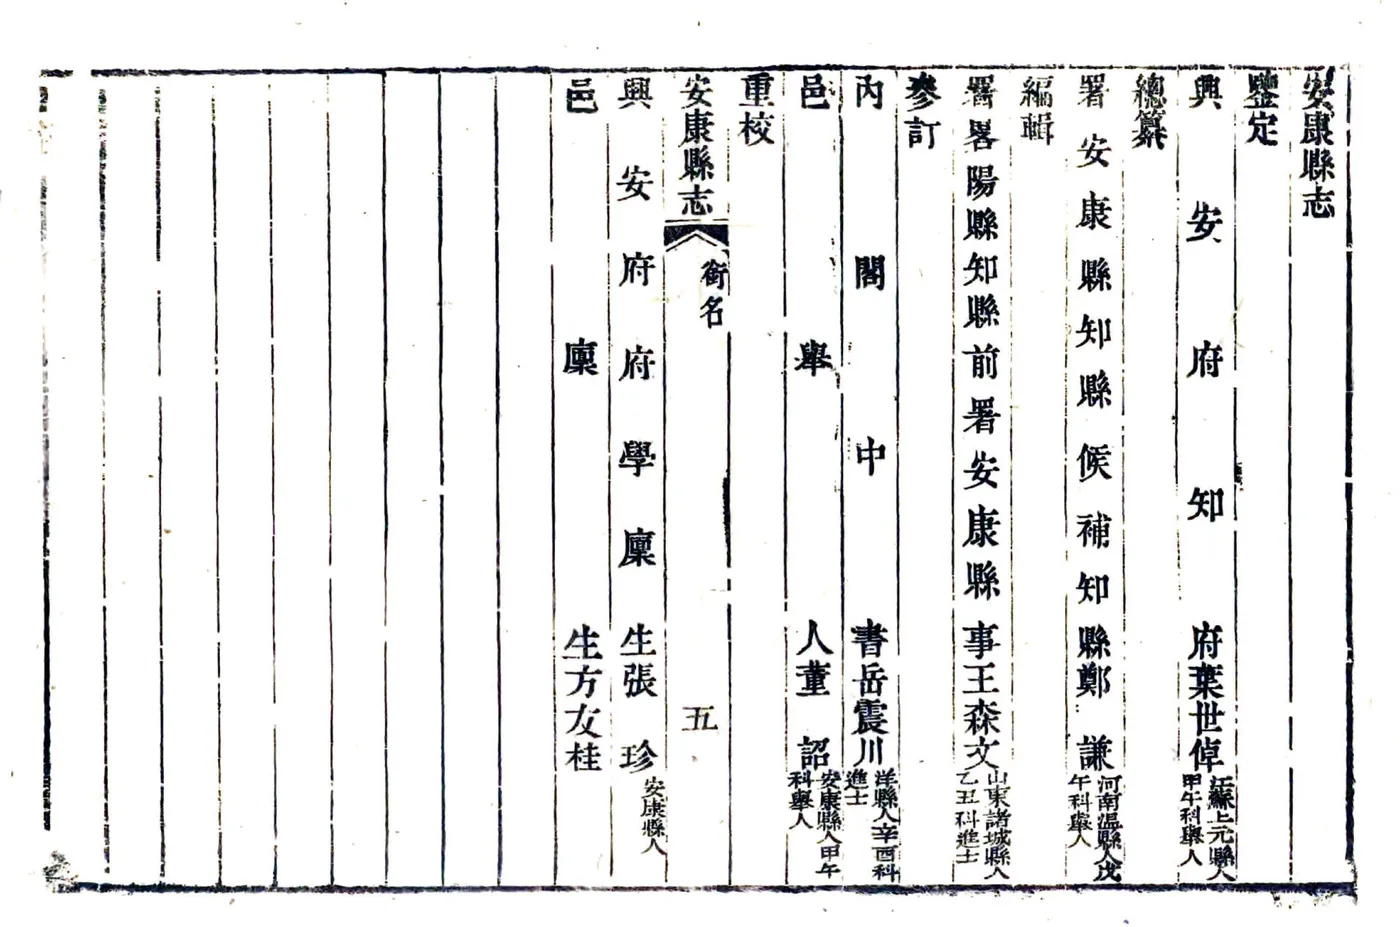 安康縣志
鑒定
興安府知府葉世倬江蘇上元縣人甲午科舉人
總纂
署安康縣知縣候補知縣鄭謙河南溫縣人戊午科舉人
編輯
署畧陽縣知縣前署安康縣事王森文山東諸城縣人乙丑科進士
參訂
內閣中書岳震川洋縣人辛酉科進士
邑舉人董詔安康縣人甲午科舉人
重校
安康縣志 銜名 五
興安府府學廩生張珍安康縣人
邑廩生方友桂